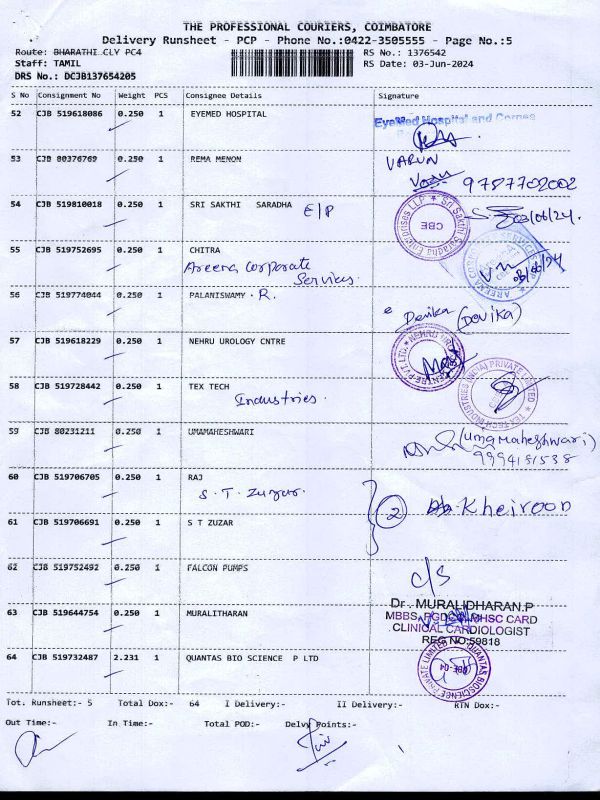 THE PROFESSIONAL COURIERS, COIMBATORE
Delivery Runsheet - PCP - Phone No.:0422-3505555 - Page No.:5
Route: BHARATHI CLY PC4 RS No.: 1376542
Staff: TAMIL RS Date: 03-Jun-2024
DRS No.: DCJB137654205
S No Consignment No Weight PCS Consignee Details Signature
52 CJB 519618086 0.250 1 EYEMED HOSPITAL EyeMed Hospital and Cornea
53 CJB 80376769 0.250 1 REMA MENON VARUN
9787702002
54 CJB 519810018 0.250 1 SRI SAKTHI SARADHA E/P Sri Sakthi Saradha Enterprises LLP CBE 03/06/24.
55 CJB 519752695 0.250 1 CHITRA
Areena Corporate Services.
AREENA CORPORATE SERVICES 03/06/24
56 CJB 519774044 0.250 1 PALANISWAMY . R. Devika (DEVIKA)
57 CJB 519618229 0.250 1 NEHRU UROLOGY CNTRE
58 CJB 519728442 0.250 1 TEX TECH
Industries.
TEX TECH INDUSTRIES (INDIA) PRIVATE LIMITED
59 CJB 80231211 0.250 1 UMAMAHESHWARI (Uma Maheshwari)
9994181538
60 CJB 519706705 0.250 1 RAJ
S.T. Zuzar. 2 Kheiroon
61 CJB 519706691 0.250 1 S T ZUZAR
62 CJB 519752492 0.250 1 FALCON PUMPS C/S
Dr. MURALIDHARAN.P
63 CJB 519644754 0.250 1 MURALITHARAN MBBS, CARD
CLINICAL CARDIOLOGIST
REG NO:59818
64 CJB 519732487 2.231 1 QUANTAS BIO SCIENCE P LTD QUANTAS BIOSCIENCE PRIVATE LIMITED CBE-04
Tot. Runsheet:- 5 Total Dox:- 64 I Delivery:- II Delivery:- RTN Dox:-
Out Time:- In Time:- Total POD:- Delvy Points:-